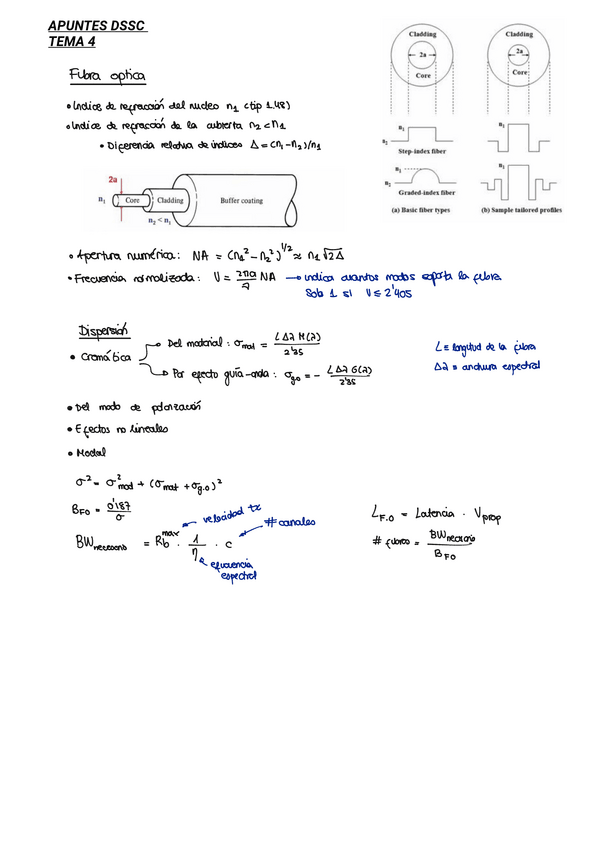 APUNTES DSSC
TEMA 4
Fibra optica
• Indice de refracción del nucleo n₁ (tip 1.48)
• Indice de refracción de la cubierta n₂ < n₁
• Diferencia relativa de indices Δ = (n₁ - n₂)/n₁
Cladding
2a
Core
n₁
n₂
Step-index fiber
n₁
n₂
Graded-index fiber
(a) Basic fiber types
Cladding
2a
Core
n₁
n₁
(b) Sample tailored profiles
2a
n₁
Core
Cladding
Buffer coating
n₂ < n₁
• Apertura numérica: NA = (n₁² - n₂²)^1/2 ≈ n₁ √2Δ
• Frecuencia normalizada: V = 2πa/λ NA → indica cuantos modos soporta la fibra
Solo 1 si V ≤ 2'405
Dispersión
• Cromática
Del material: σmat = L Δλ M(λ) / 2'35
Por efecto guía-onda: σg.o = - L Δλ G(λ) / 2'35
L ≡ longitud de la fibra
Δλ ≡ anchura espectral
• Del modo de polarización
• Efectos no lineales
• Modal
σ² = σ²mod + (σmat + σg.o)²
BFO = 0'187/σ
BWnecesario = Rb^max · 1/η · C
velocidad tx
# canales
eficiencia
espectral
LF.O = Latencia · Vprop
# fibras = BWnecesario / BFO